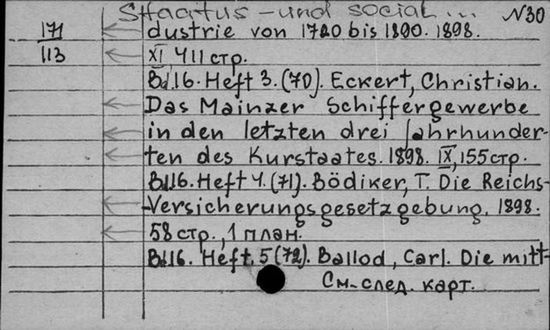 Staatus - und social... N30
171 dustrie von 1720 bis 1890. 1898.
113 XI, 411 стр.
Bd.16. Heft 3. (70). Eckert, Christian.
Das Mainzer Schiffergewerbe
in den letzten drei Jahrhunder-
ten des Kurstaates. 1898. IX, 155 стр.
Bd.16. Heft 4. (71). Bödiker, T. Die Reichs-
Versicherungsgesetzgebung. 1898.
58 стр., 1 план.
Bd.16. Heft. 5 (72). Ballod, Carl. Die mitt-
См. след. карт.